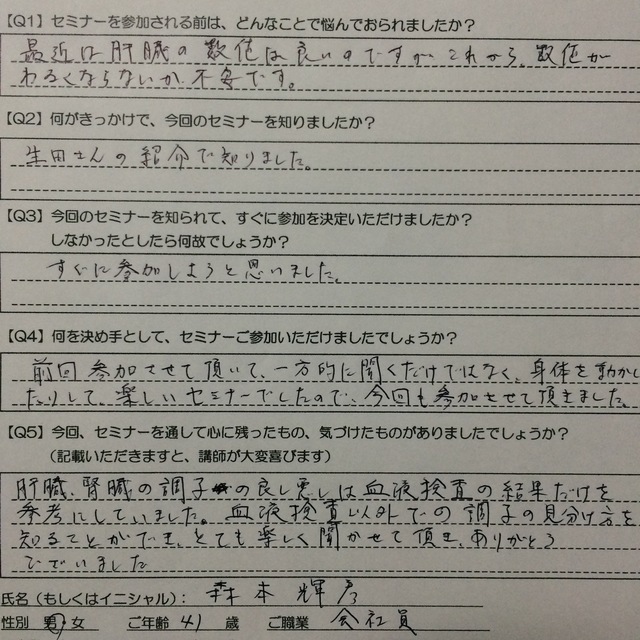 【Q1】セミナーを参加される前は、どんなことで悩んでおられましたか？
最近は肝臓の数値は良いのですが、これから、数値が
わるくならないか不安です。
【Q2】何がきっかけで、今回のセミナーを知りましたか？
生田さんの紹介で知りました。
【Q3】今回のセミナーを知られて、すぐに参加を決定いただけましたか？
しなかったとしたら何故でしょうか？
すぐに参加しようと思いました。
【Q4】何を決め手として、セミナーご参加いただけましたでしょうか？
前回参加させて頂いて、一方的に聞くだけではなく、身体を動かし
たりして、楽しいセミナーでしたので、今回も参加させて頂きました。
【Q5】今回、セミナーを通して心に残ったもの、気づけたものがありましたでしょうか？
（記載いただきますと、講師が大変喜びます）
肝臓、腎臓の調子の良し悪しは血液検査の結果だけを
参考にしていました。血液検査以外での調子の見分け方を
知ることができ、とても楽しく聞かせて頂き、ありがとう
ございました
氏名（もしくはイニシャル）： 森本 輝彦
性別 男・女 ご年齢 41 歳 ご職業 会社員